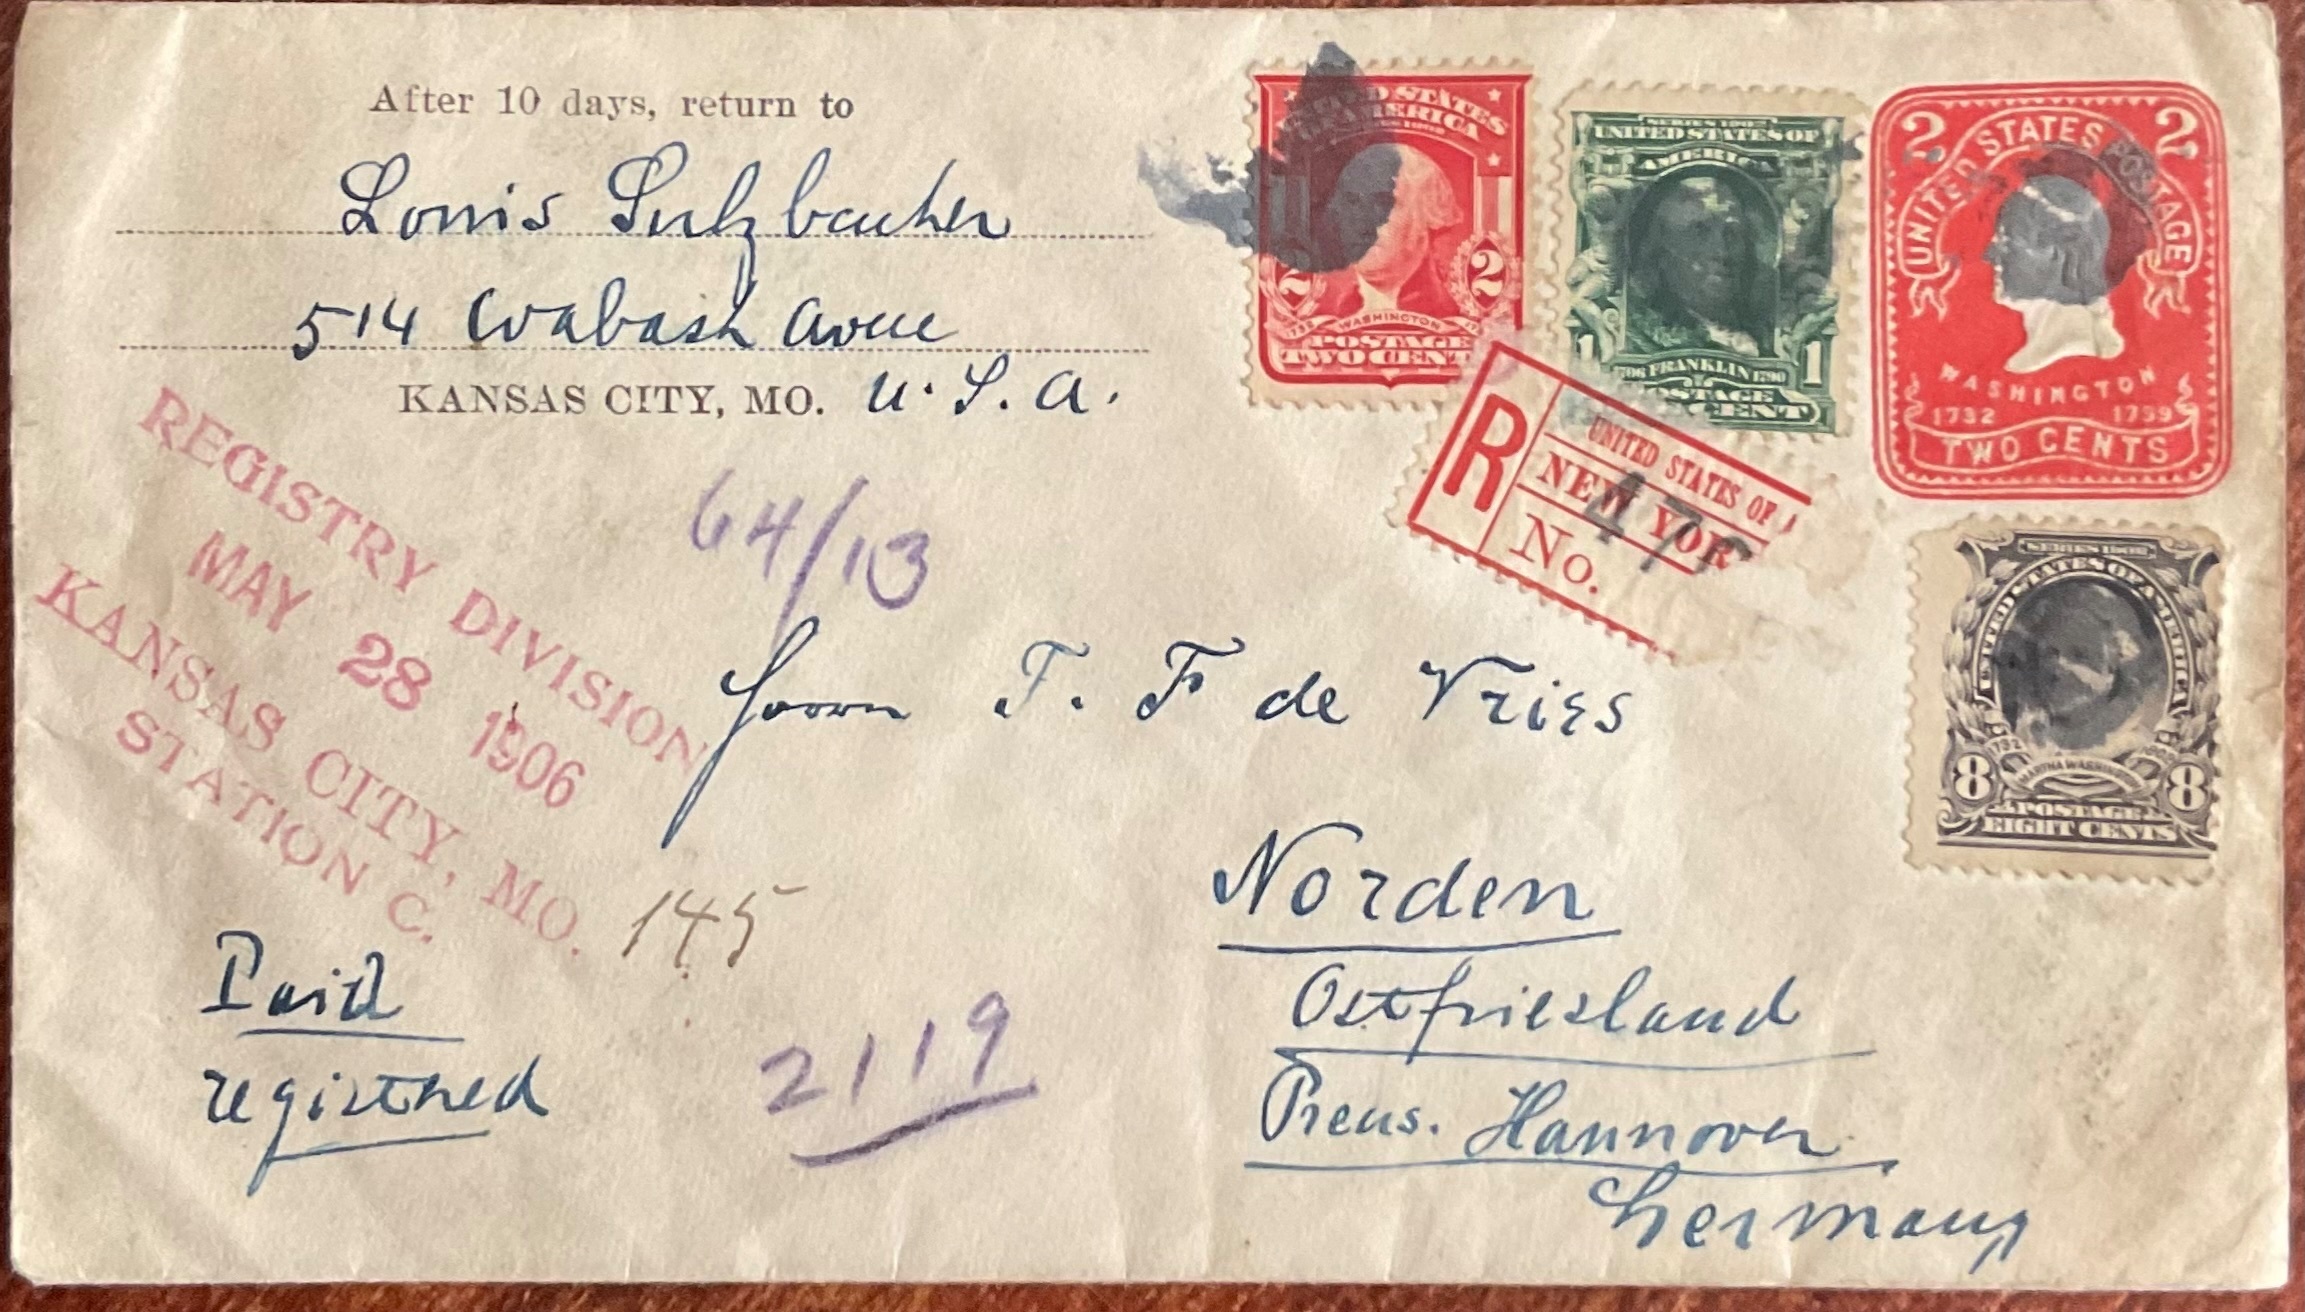 After 10 days, return to
Louis Sulzbacher
514 Wabash Avnue
KANSAS CITY, MO. U. S. A.
UNITED STATES
OF AMERICA
2 2
WASHINGTON
POSTAGE
TWO CENT
SERIES 1902
UNITED STATES OF
AMERICA
1 1
FRANKLIN 1790
CENT
2 2
UNITED STATES POSTAGE
WASHINGTON
1732 1799
TWO CENTS
R
UNITED STATES OF
NEW YOR
No.
47
SERIES 1902
UNITED STATES OF AMERICA
1732
MARTHA WASHINGTON
8 8
POSTAGE
EIGHT CENTS
REGISTRY DIVISION
MAY 28 1906
KANSAS CITY, MO.
STATION C.
64/13
Herrn T. F. de Vries
Norden
Ostfriesland
Preus. Hannover
Germany
145
Paid
registred
2119